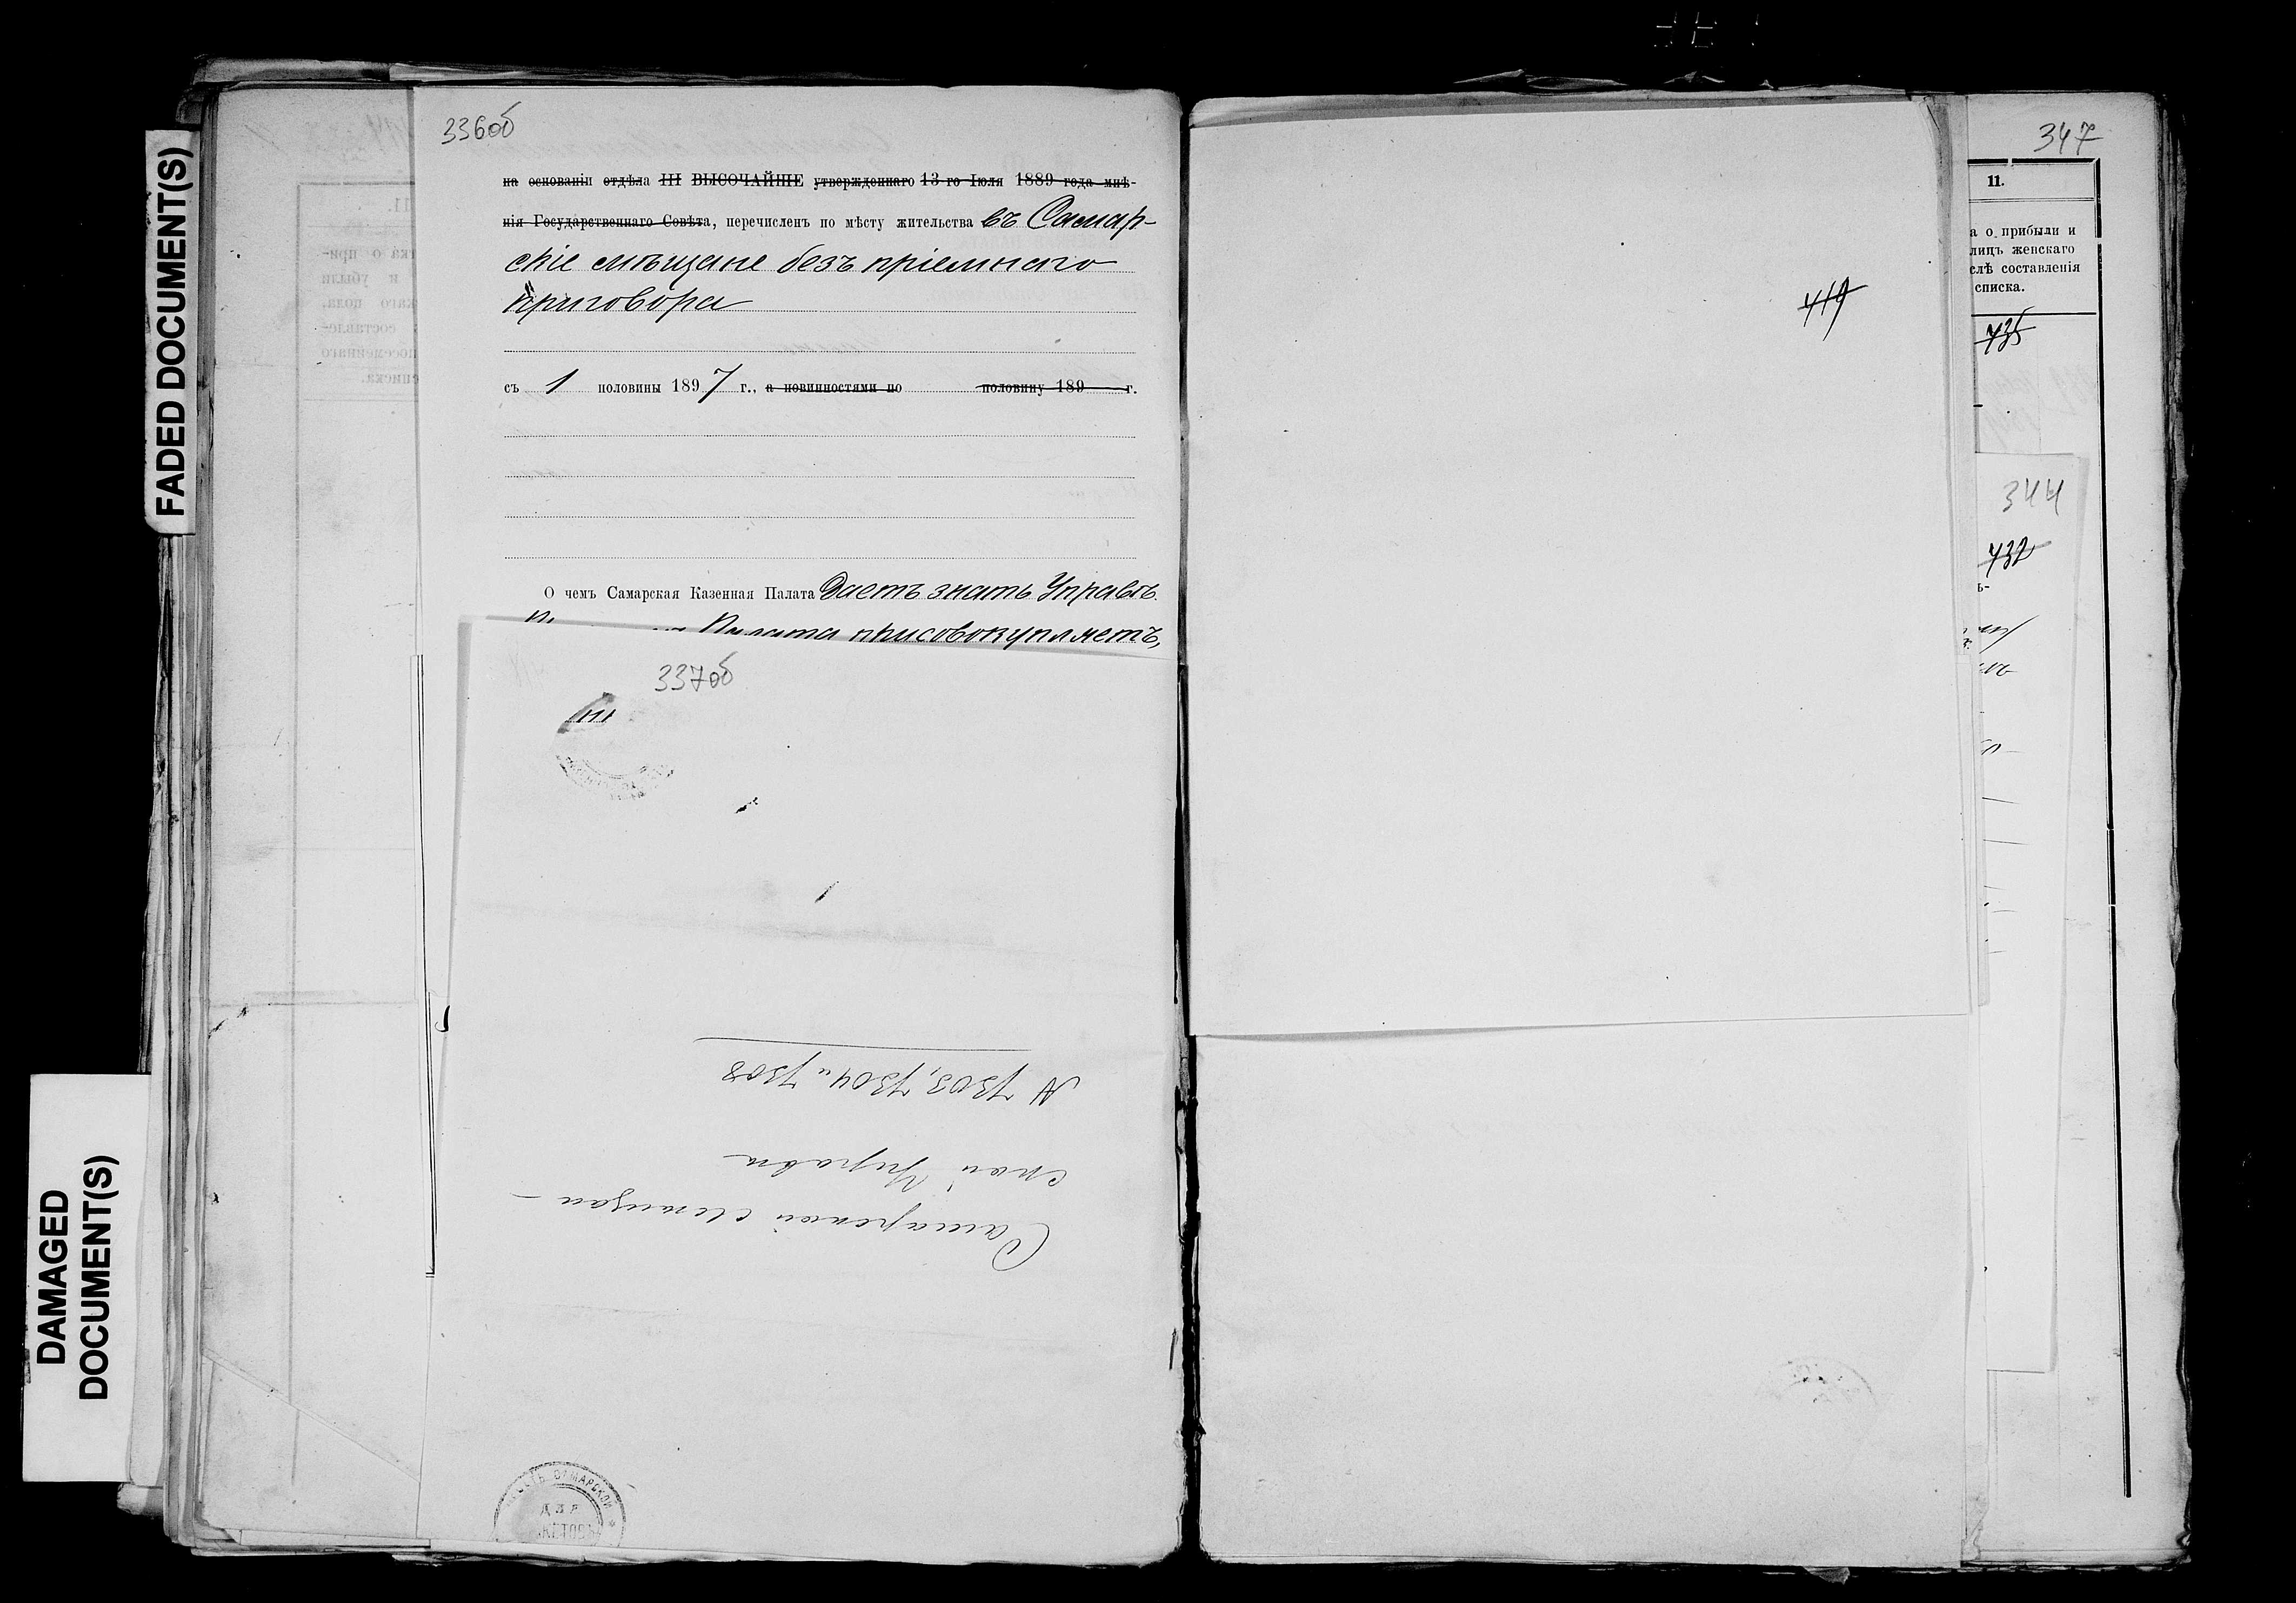 FADED DOCUMENT(S)
DAMAGED
DOCUMENT(S)
336об
на основаніи отдѣла III ВЫСОЧАЙШЕ утвержденнаго 13-го Іюля 1889 года мнѣ-
нія Государственнаго Совѣта, перечисленъ по мѣсту жительства въ Самар-
скіе мѣщане безъ пріемнаго
приговора
съ 1 половины 1897 г., а повинностями по половину 189 г.
О чемъ Самарская Казенная Палата даетъ знать Управѣ.
Палата присовокупляетъ,
337об
Самарской мѣщан-
ской Управѣ
№ 7303, 7304 и 7308
САМАРСКОЙ
ДЛЯ
419
347
11.
а о прибыли и
лицъ женскаго
слѣ составленія
списка.
735
344
732